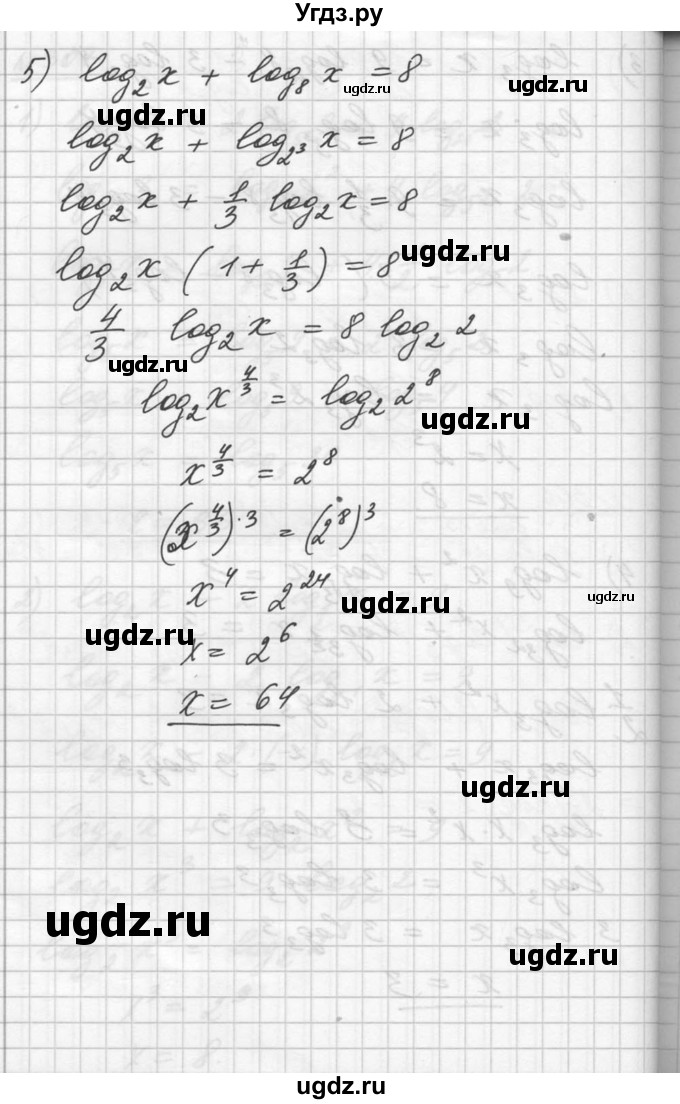 Угдз.ру
5) log₂ x + log₈ x = 8
ugdz.ru
ugdz.ru
ugdz.ru
log₂ x + log_{2³} x = 8
log₂ x + 1/3 log₂ x = 8
log₂ x (1 + 1/3) = 8
ugdz.ru
4/3 log₂ x = 8 log₂ 2
ugdz.ru
log₂ x^{4/3} = log₂ 2⁸
ugdz.ru
x^{4/3} = 2⁸
(x^{4/3})^{·3} = (2⁸)³
x⁴ = 2²⁴
ugdz.ru
ugdz.ru
ugdz.ru
x = 2⁶
x = 64
ugdz.ru
ugdz.ru
ugdz.ru
ugdz.ru